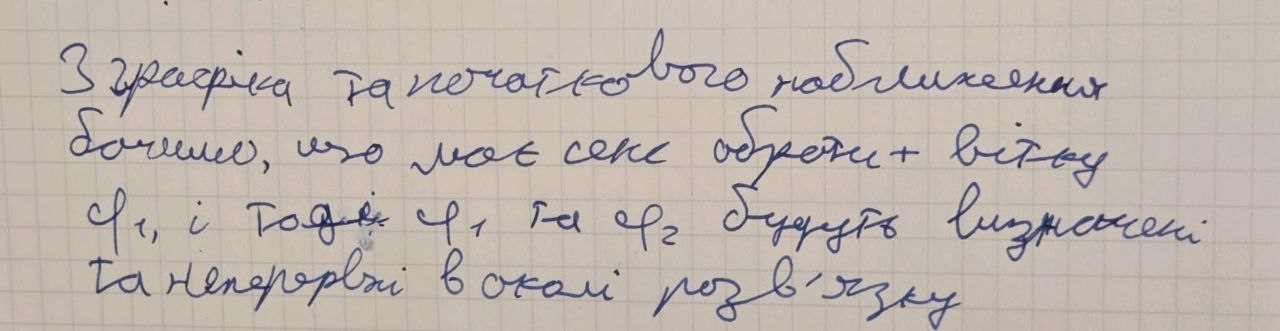 З графіка та початкового наближення
бачимо, що має сенс обрати + вітку
φ₁, і тоді φ₁ та φ₂ будуть визначені
та неперервні в околі розв'язку